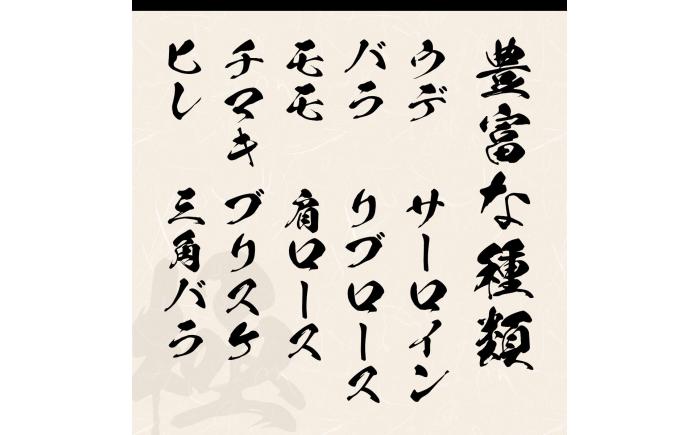 豊富な種類
ウデ
サーロイン
バラ
リブロース
モモ
肩ロース
チマキ
ブリスケ
ヒレ
三角バラ
極